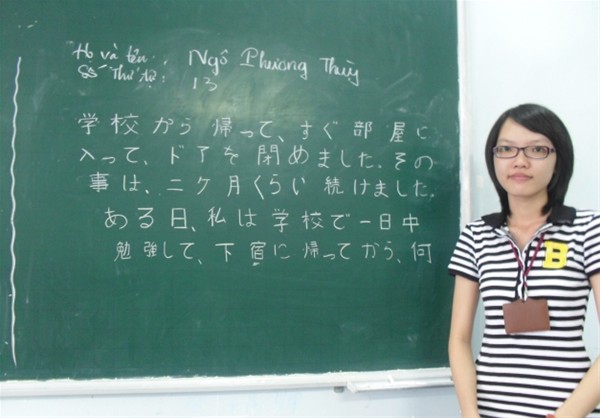 Họ và tên : Ngô Phương Thùy
Số Thứ tự : 13
学校から帰って、すぐ部屋に
入って、ドアを閉めました。その
事は、二ケ月くらい続けました。
ある日、私は学校で一日中
勉強して、下宿に帰ってから、何
B